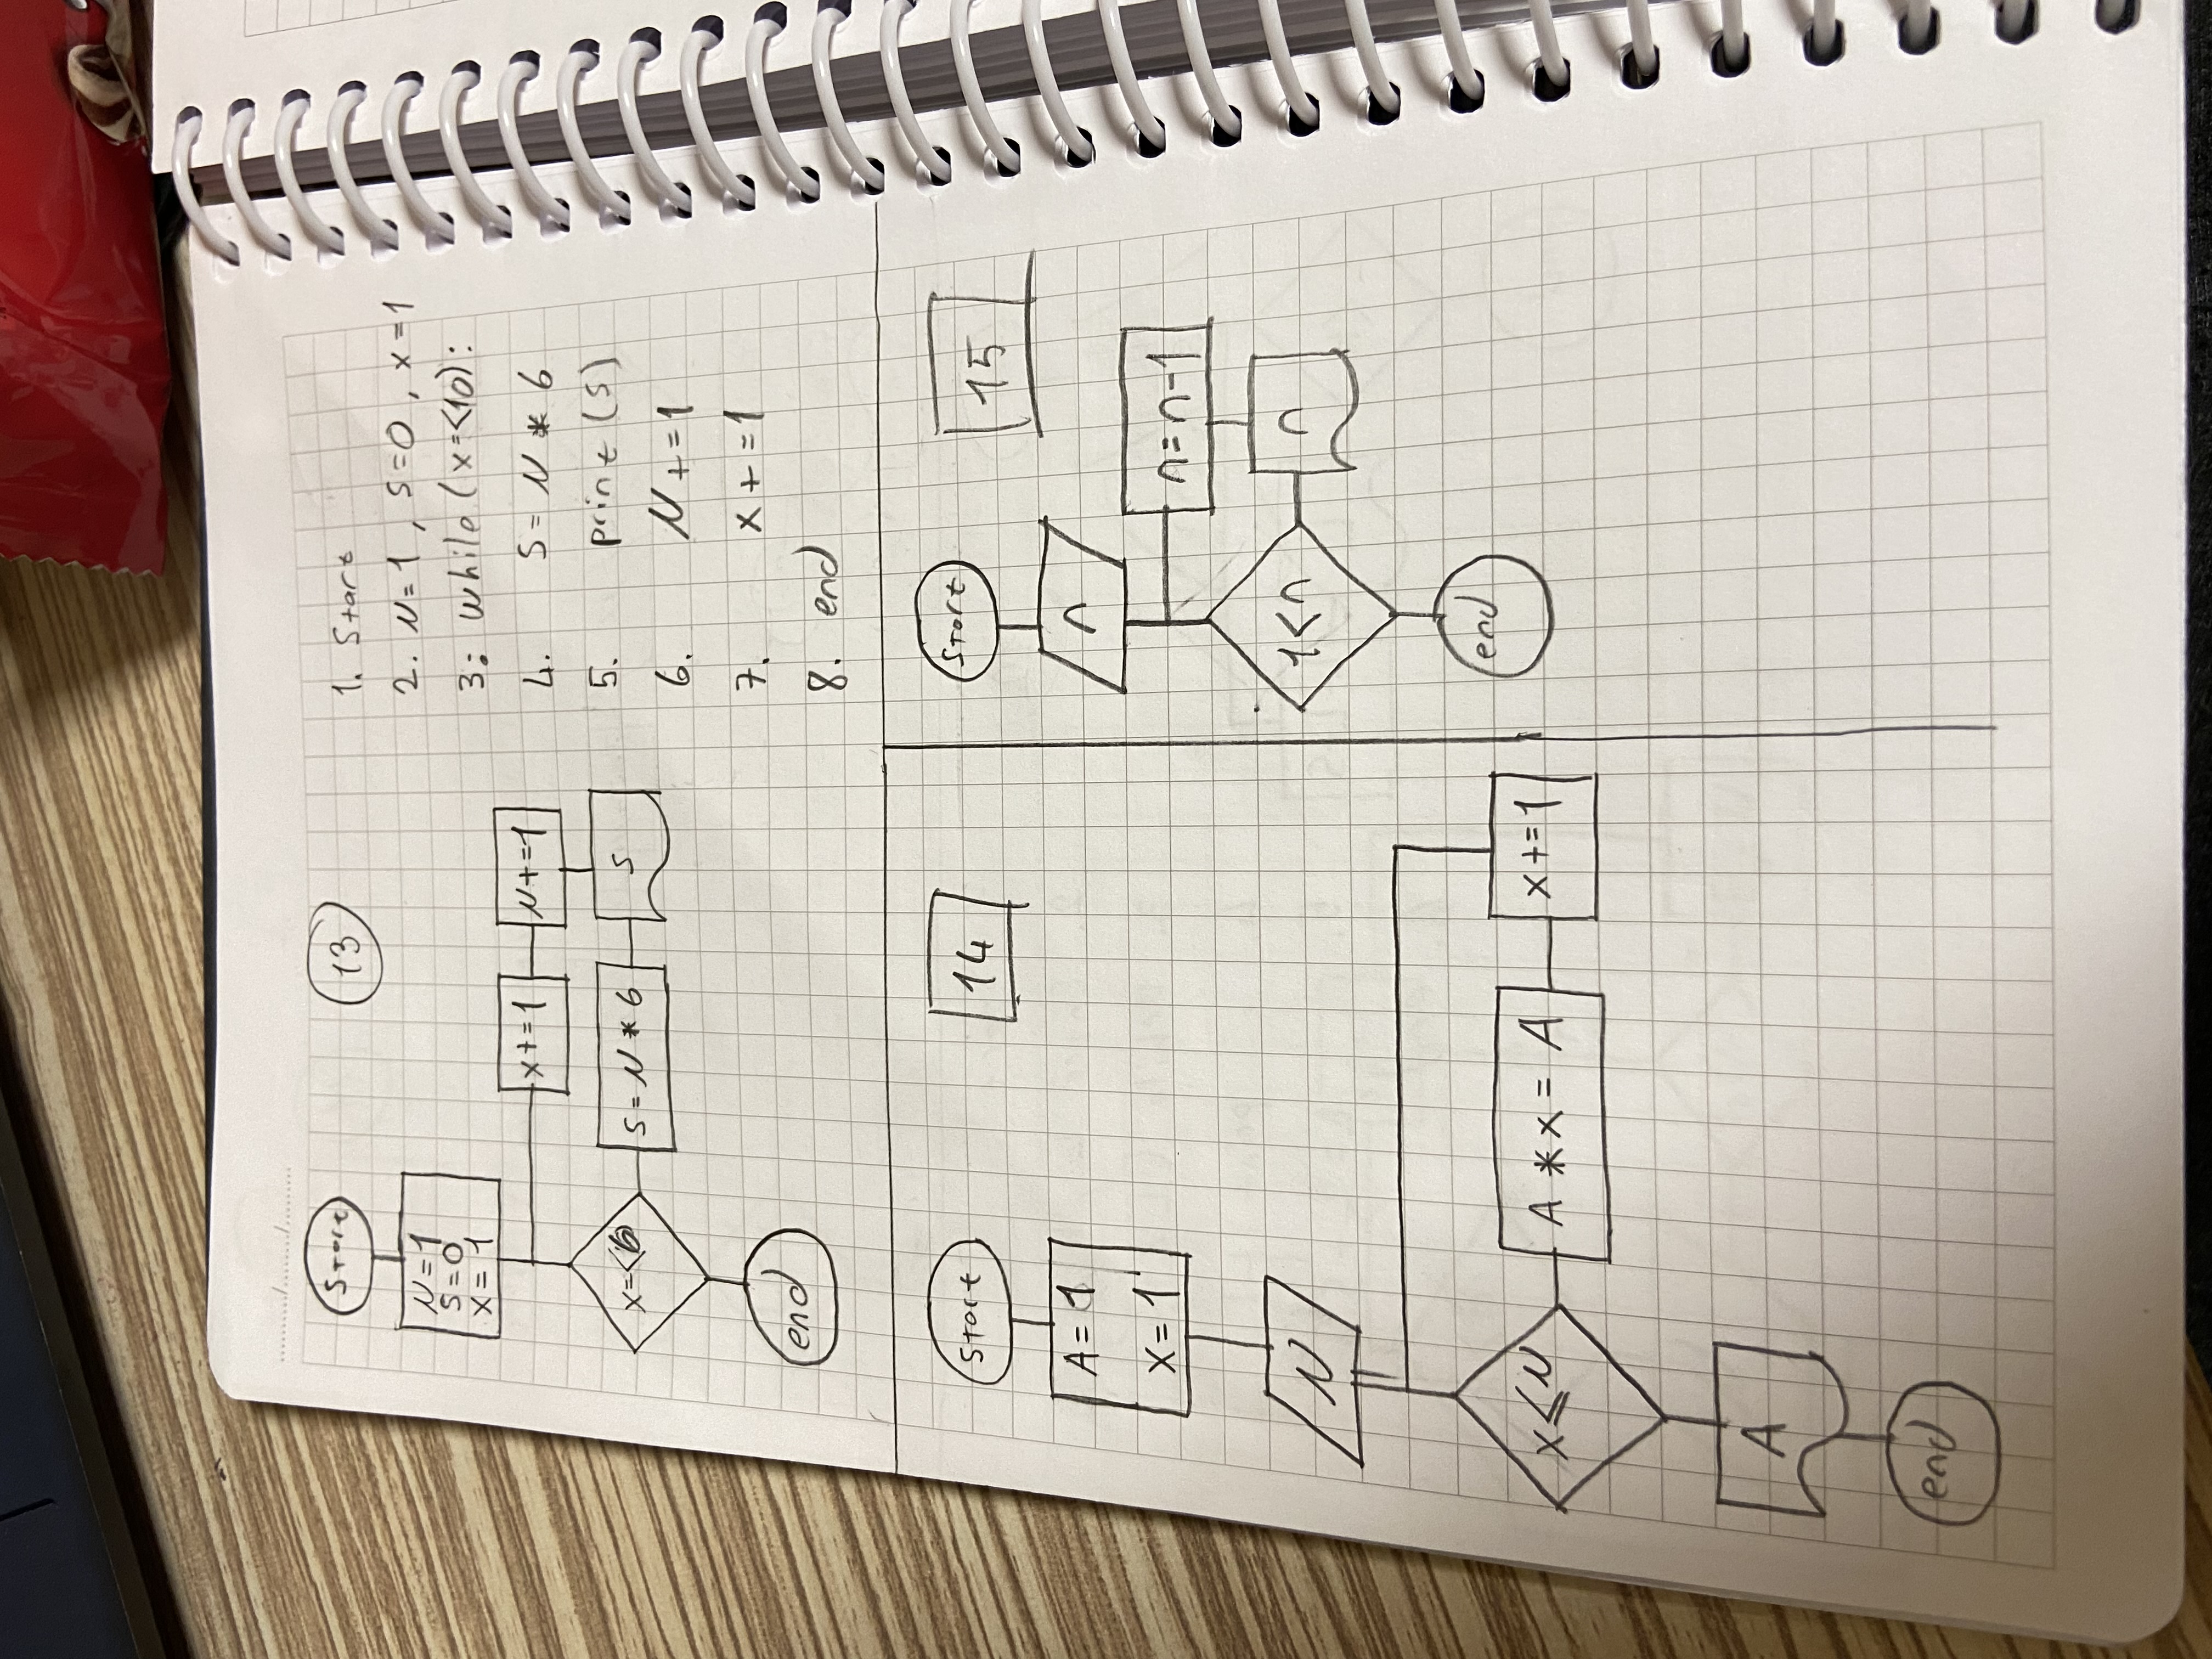 Start
13
N=1
S=0
x=1
x+=1
N+=1
x=<6
S=N*6
S
end
1. Start
2. N=1, S=0, x=1
3: while(x=<10):
4. S=N*6
5. print(S)
6. N+=1
7. x+=1
8. end
Start
14
A=1
x=1
N
x≤N
A*x=A
x+=1
A
end
Start
15
n
n=n-1
1<n
n
end